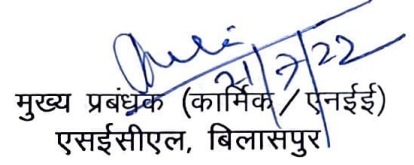 21/7/22
मुख्य प्रबंधक (कार्मिक/एनईई)
एसईसीएल, बिलासपुर